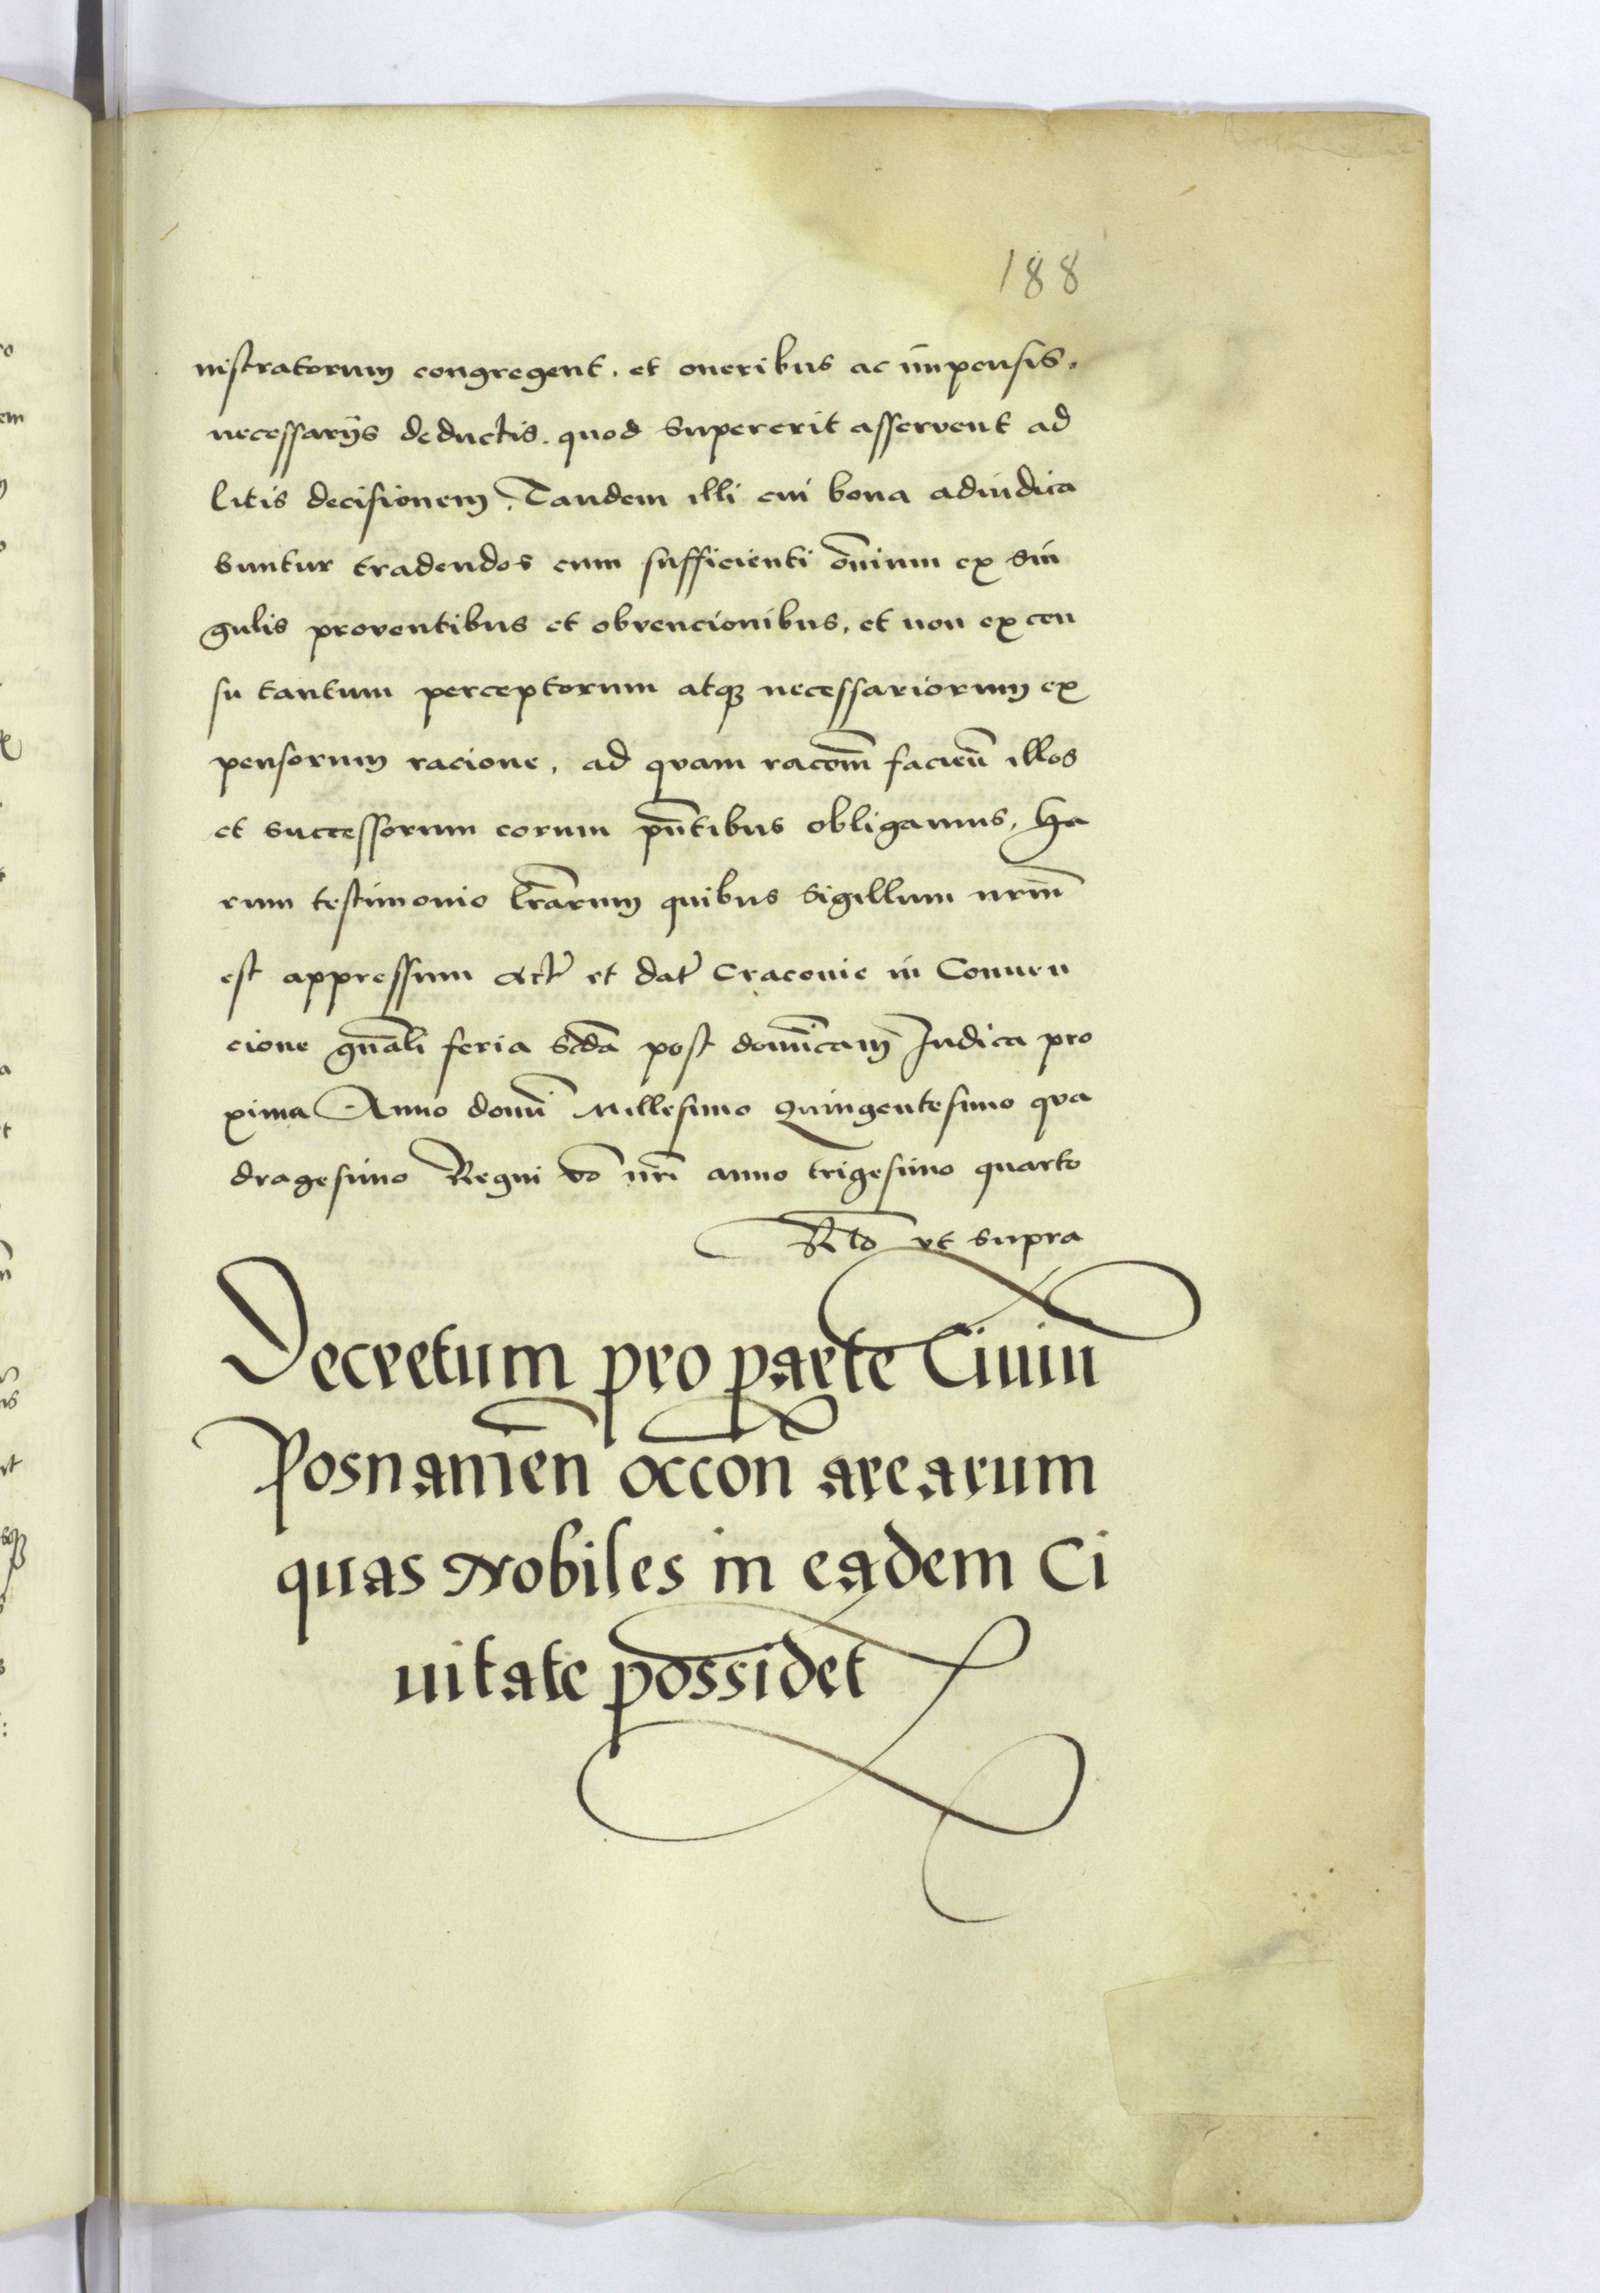 188
nistratorum congregent. et oneribus ac impensis.
necessarijs deductis. quod supererit asservent ad
litis decisionem. Tandem illi cui bona adiudica
buntur tradendos cum sufficienti om̄ium ex sin
gulis proventibus et obvencionibus, et non ex cen
su tantum perceptorum atq3 necessariorum ex
pensorum racione, ad quam racōm̄ facien̄ illos
et successorum eorum pn̄tibus obligamus, Ha
rum testimonio lrārum quibus sigillum nrm̄
est appressum Act̄ et dat̄ Cracovie in Conuen
cione gn̄ali feria scd̄a post domīcam Iudica pro
xima Anno domī Millesimo Quingentesimo qua
dragesimo Regni vō nrī anno trigesimo quarto
Rl̄o vt supra
Decretum pro parte Ciuiū
Posnanien̄ accōn arearum
quas Nobiles in eadem Ci
uitate possidet